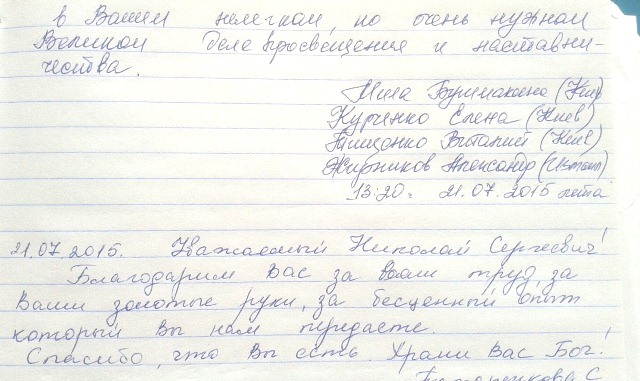 в Вашем нелегком, но очень нужном
Великом Деле просвещения и наставни-
чества.
Мила Бурмакина (Киев)
Курченко Елена (Киев)
Тищенко Виталий (Киев)
Жирников Александр (Измаил)
13:20. 21.07.2015 лета
21.07.2015. Уважаемый Николай Сергеевич!
Благодарим Вас за Ваш труд, за
Ваши золотые руки, за бесценный опыт
который Вы нам передаете.
Спасибо, что Вы есть. Храни Вас Бог!